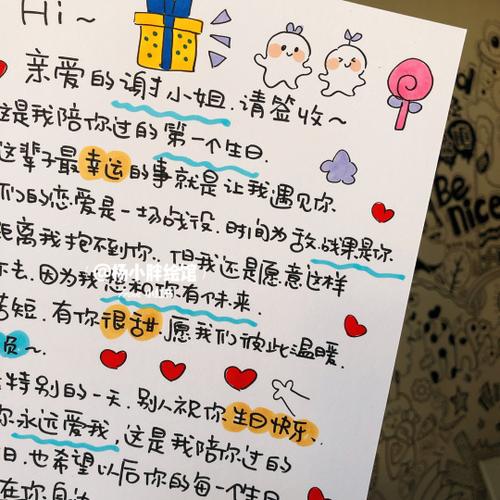 Hi~
亲爱的谢小姐.请签收~
这是我陪你过的第一个生日.
这辈子最幸运的事就是让我遇见你
们的恋爱是一场战役.时间为敌.战果是你.
距离我抱不到你.但我还是愿意这样
下去.因为我想和你有个未来.
苦短.有你很甜.愿我们彼此温暖.
负~
特别的一天.别人祝你生日快乐.
你永远爱我,这是我陪你过的
日.也希望以后你的每一个生日
在你身边
@杨小胖绘馆
Be
Nice